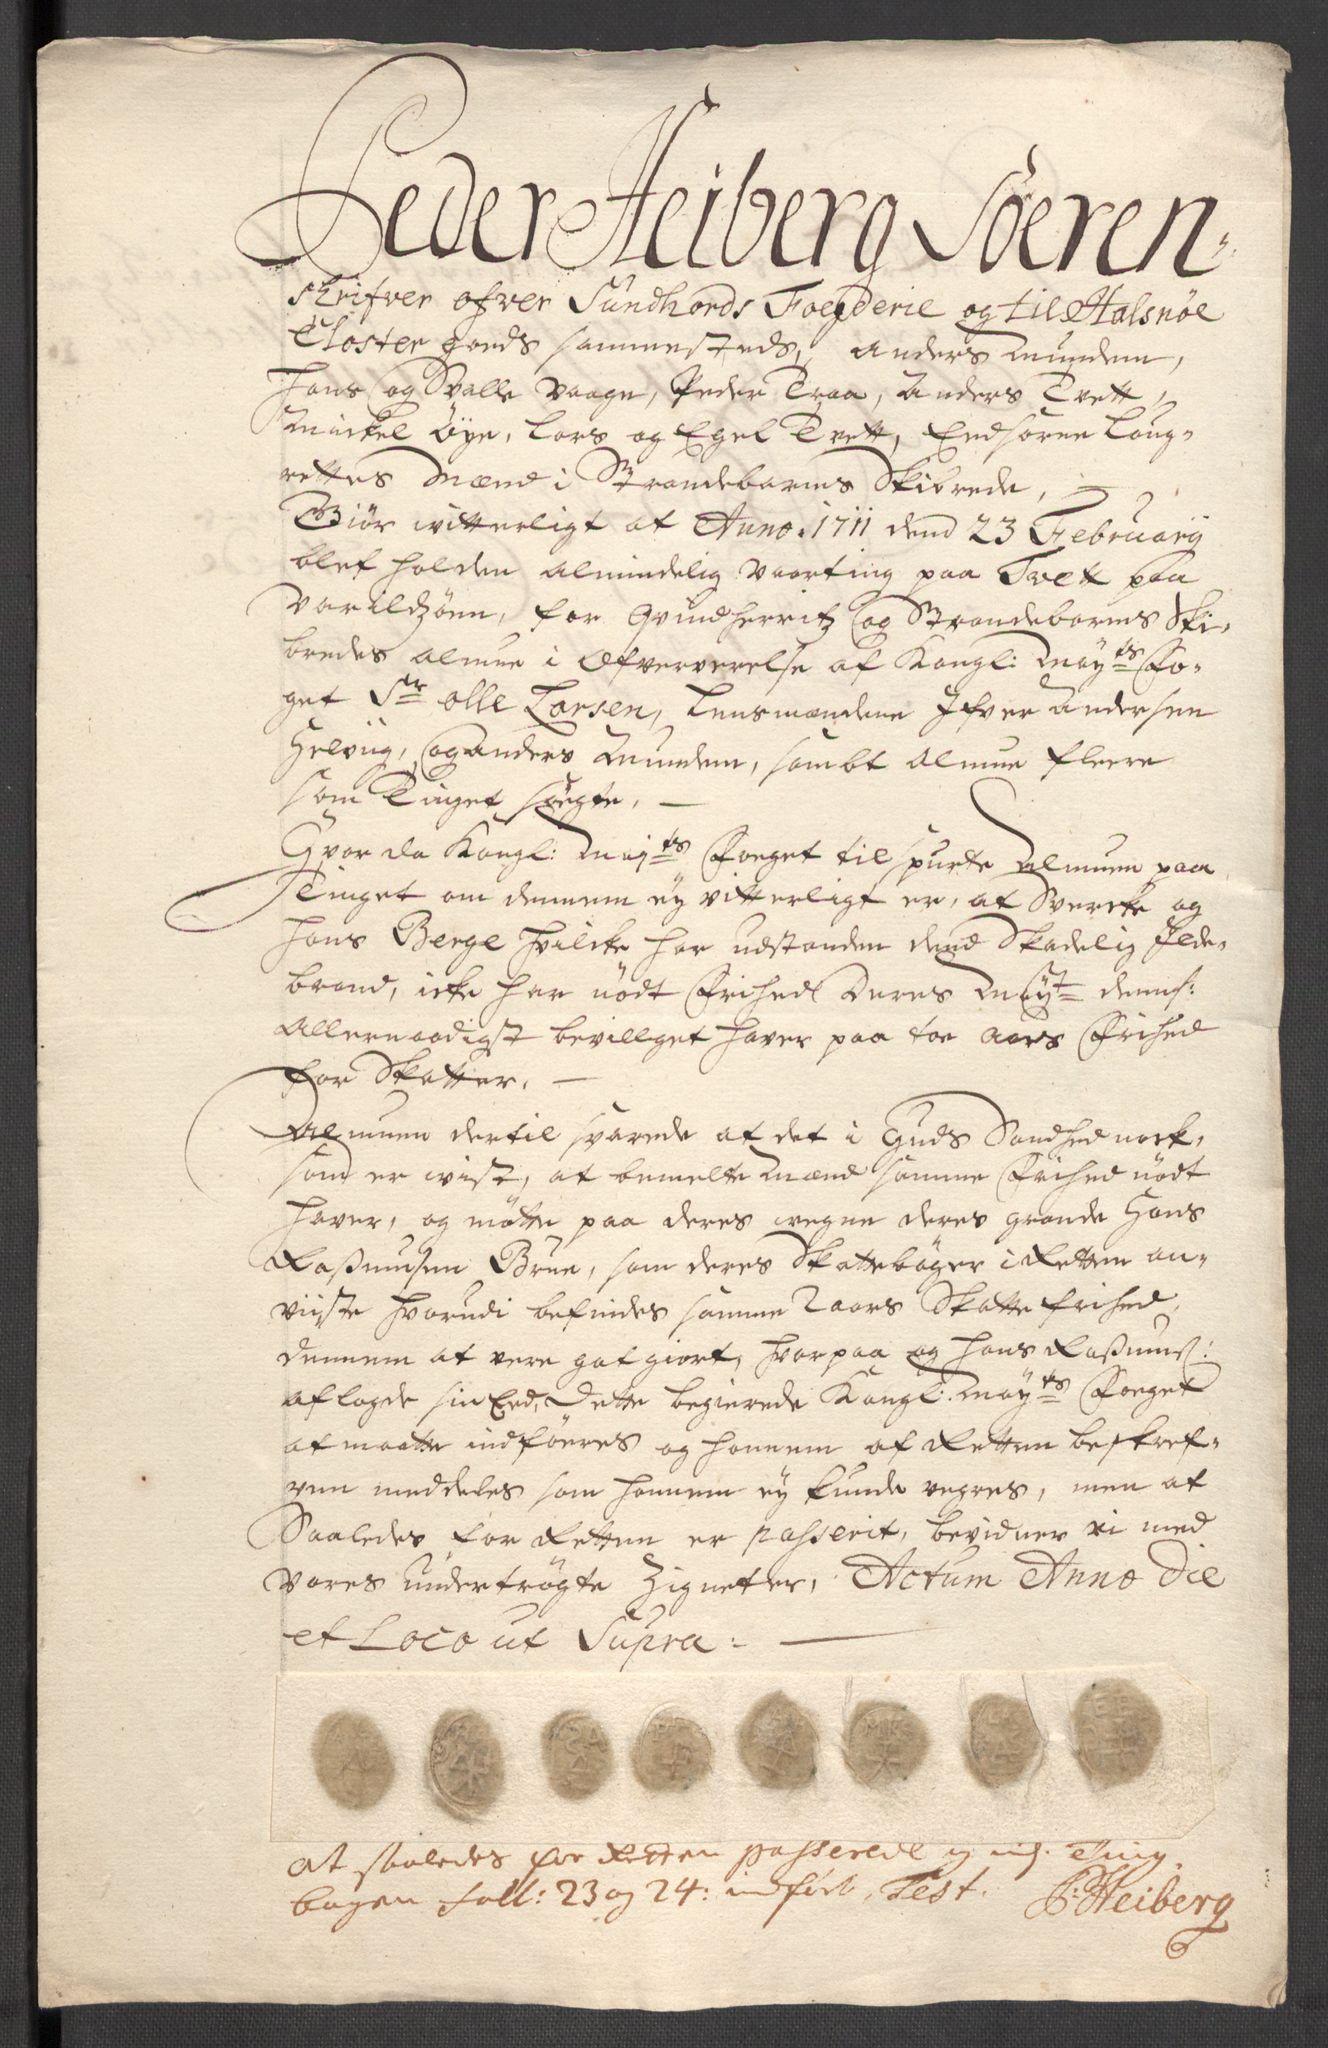 Peder Heiberg Sören-
skrifver ofver Sundhords Fogderie og til Halsnöe
Closter goeds sammesteds, Anders Mundem,
Hans og Palle Vaage, Peder Traa, Anders Tvett,
Mickel Öye, Lars og Egel Tvett, Eedsorne Laug-
rettes Mænd i Strandebarms Skibrede,
Giör witterligt at Anno 1711 dend 23 February
blef holden almindelig Vaarting paa Tvett paa
Varildzöen, for Qvindherritz og Strandebarms Ski-
bredes almue i Ofververelse af Kongl: Mayts Fo-
get Sr Olle Larsen, Lensmændene Ifver Andersen
Helvig, og Anders Mundem, sambt almue fleere
som Tinget sögte,
Hvor da Kongl: Mayts Foeget tilspurte Almuen paa
Tinget om dennem ey vitterligt er, at Svercke og
Hans Berge hvilcke har udstanden dend Skadelig Ilde-
brand, icke har nödt Frihed Deres Mayt dennem
Allernaadigst bevillget haver paa toe aars Frihed
for Skatter,
Almuen dertil svarede at det i Guds Sandhed nock-
som er wist, at bemelte Mænd samme Frihed nödt
haver, og mötte paa deres wegne deres grande Hans
Rasmusen Brue, som deres Skatteböger i Retten an-
viiste hvorudi befindes samme 2 aars Skatte frihed
dennem at vere gotgiort, hvorpaa og Hans Rasmus:
aflagde sin Eed, Dette begierede Kongl: Mayts Foeget
at maatte indföeres og hannem af Retten beskref-
ven meddeles som hannem ey kunde negtes, men at
Saaledes for Retten er passerit, bevidner vi med
vores undertrögte Zigneter, Actum Anno Die
et Loco ut Supra:
At saaledes for Retten passerede og i Ting
bogen foll: 23 og 24: indfört, Test.
P: Heiberg